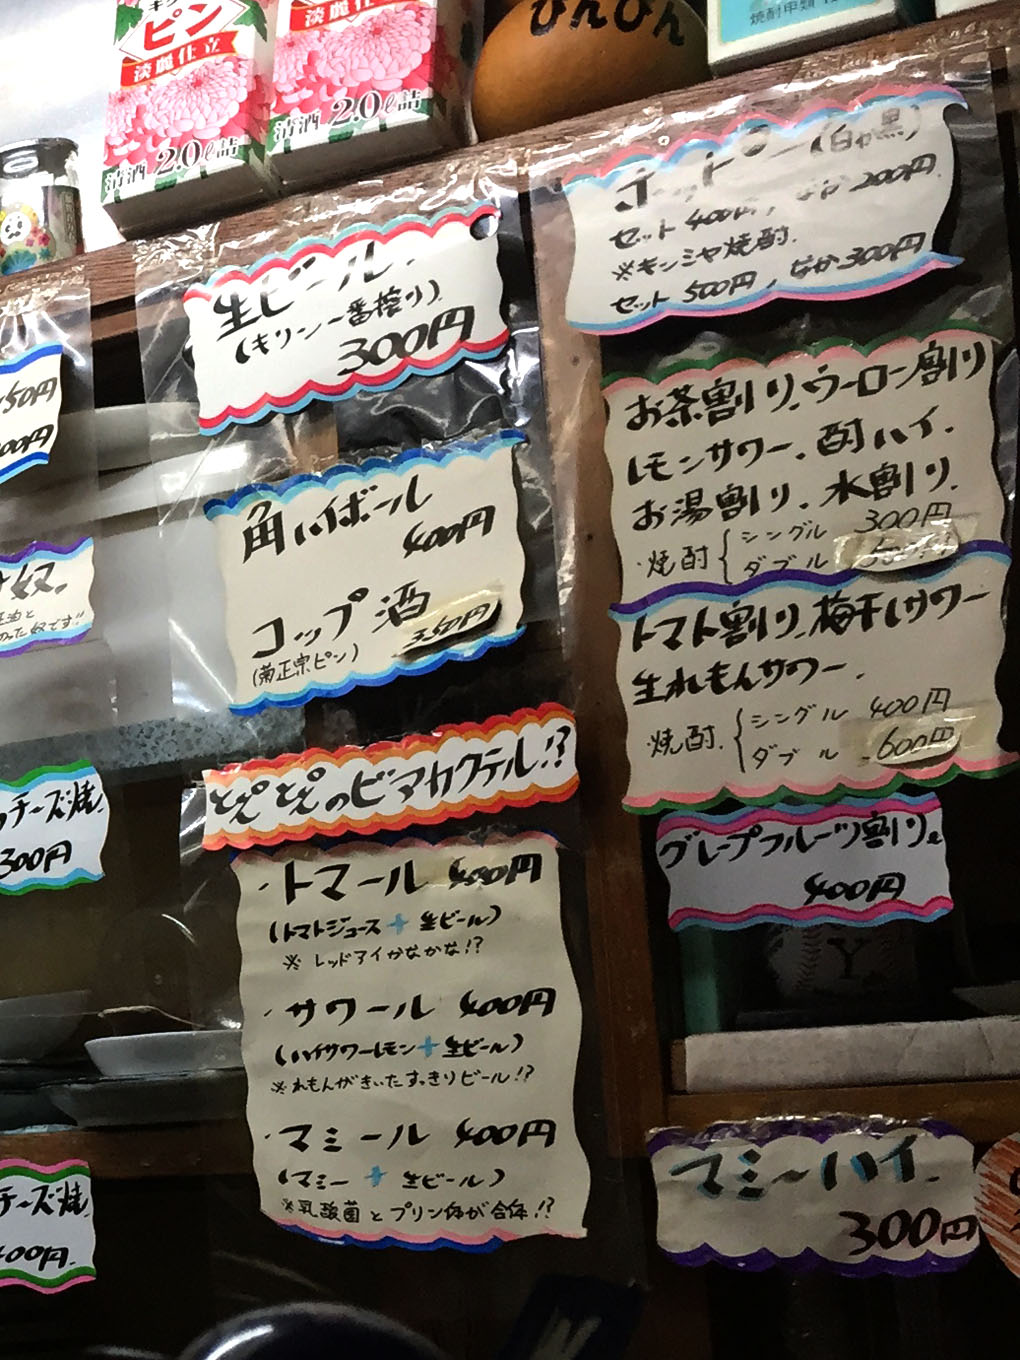 ピン
淡麗仕立
清酒 2.0ℓ詰
淡麗仕立
清酒 2.0ℓ詰
ぴんぴん
焼酎甲類
ホッピー(白か黒)
セット 400円, なか 200円.
※キンミヤ焼酎.
セット 500円, なか 300円
生ビール.
(キリン一番搾り)
300円
角ハイボール
400円
コップ酒
350円
(菊正宗ピン)
お茶割り.ウーロン割り
レモンサワー.酎ハイ.
お湯割り.水割り.
・焼酎 シングル 300円
ダブル
トマト割り.梅干しサワー
生れもんサワー.
・焼酎. シングル 400円
ダブル 600円
グレープフルーツ割り.
400円
とんとんのビマカクテル!?
・トマール 400円
(トマトジュース+生ビール)
※レッドアイかなかな!?
・サワール 400円
(ハイサワーレモン+生ビール)
※れもんがきいたすっきりビール!?
・マミール 400円
(マミー+生ビール)
※乳酸菌とプリン体が合体!?
マミーハイ.
300円
50円
00円
奴.
った奴です!!
チーズ焼.
300円
チーズ焼.
400円.
Y